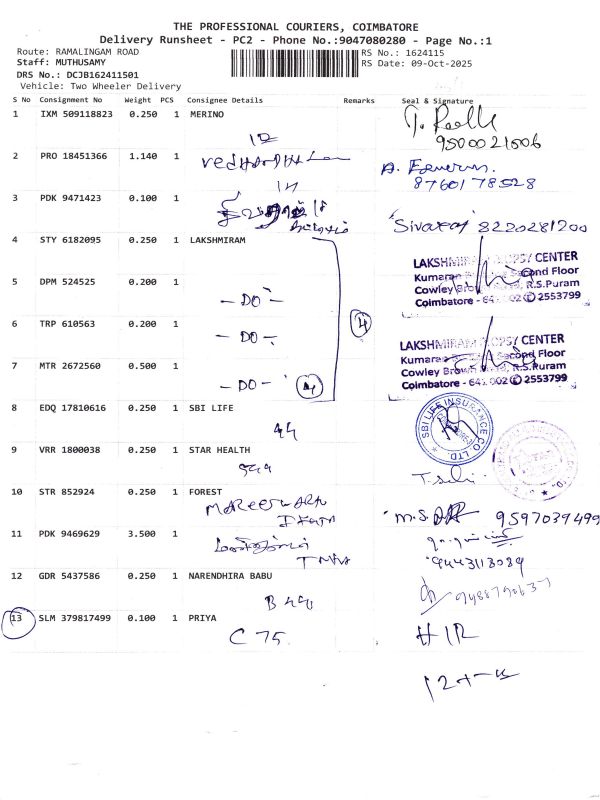 THE PROFESSIONAL COURIERS, COIMBATORE
Delivery Runsheet - PC2 - Phone No.:9047080280 - Page No.:1
Route: RAMALINGAM ROAD
Staff: MUTHUSAMY
RS No.: 1624115
RS Date: 09-Oct-2025
DRS No.: DCJB162411501
Vehicle: Two Wheeler Delivery
S No Consignment No Weight PCS Consignee Details Remarks Seal & Signature
1 IXM 509118823 0.250 1 MERINO
12
9500021506
2 PRO 18451366 1.140 1
8760178528
3 PDK 9471423 0.100 1
Sivaraj 8220281200
4 STY 6182095 0.250 1 LAKSHMIRAM
LAKSHMIRAM BIOPSY CENTER
Kumaran Second Floor
Cowley Brown Road, R.S.Puram
Coimbatore - 641 002 ✆ 2553799
5 DPM 524525 0.200 1
- DO -
6 TRP 610563 0.200 1
- DO -
4
LAKSHMIRAM BIOPSY CENTER
Kumaran Second Floor
Cowley Brown Road, R.S.Puram
Coimbatore - 641 002 ✆ 2553799
7 MTR 2672560 0.500 1
- DO - 4
8 EDQ 17810616 0.250 1 SBI LIFE
44
SBI LIFE INSURANCE CO. LTD.
9 VRR 1800038 0.250 1 STAR HEALTH
10 STR 852924 0.250 1 FOREST
M.S. 9597039499
11 PDK 9469629 3.500 1
9443113089
12 GDR 5437586 0.250 1 NARENDHIRA BABU
13 SLM 379817499 0.100 1 PRIYA
C 75